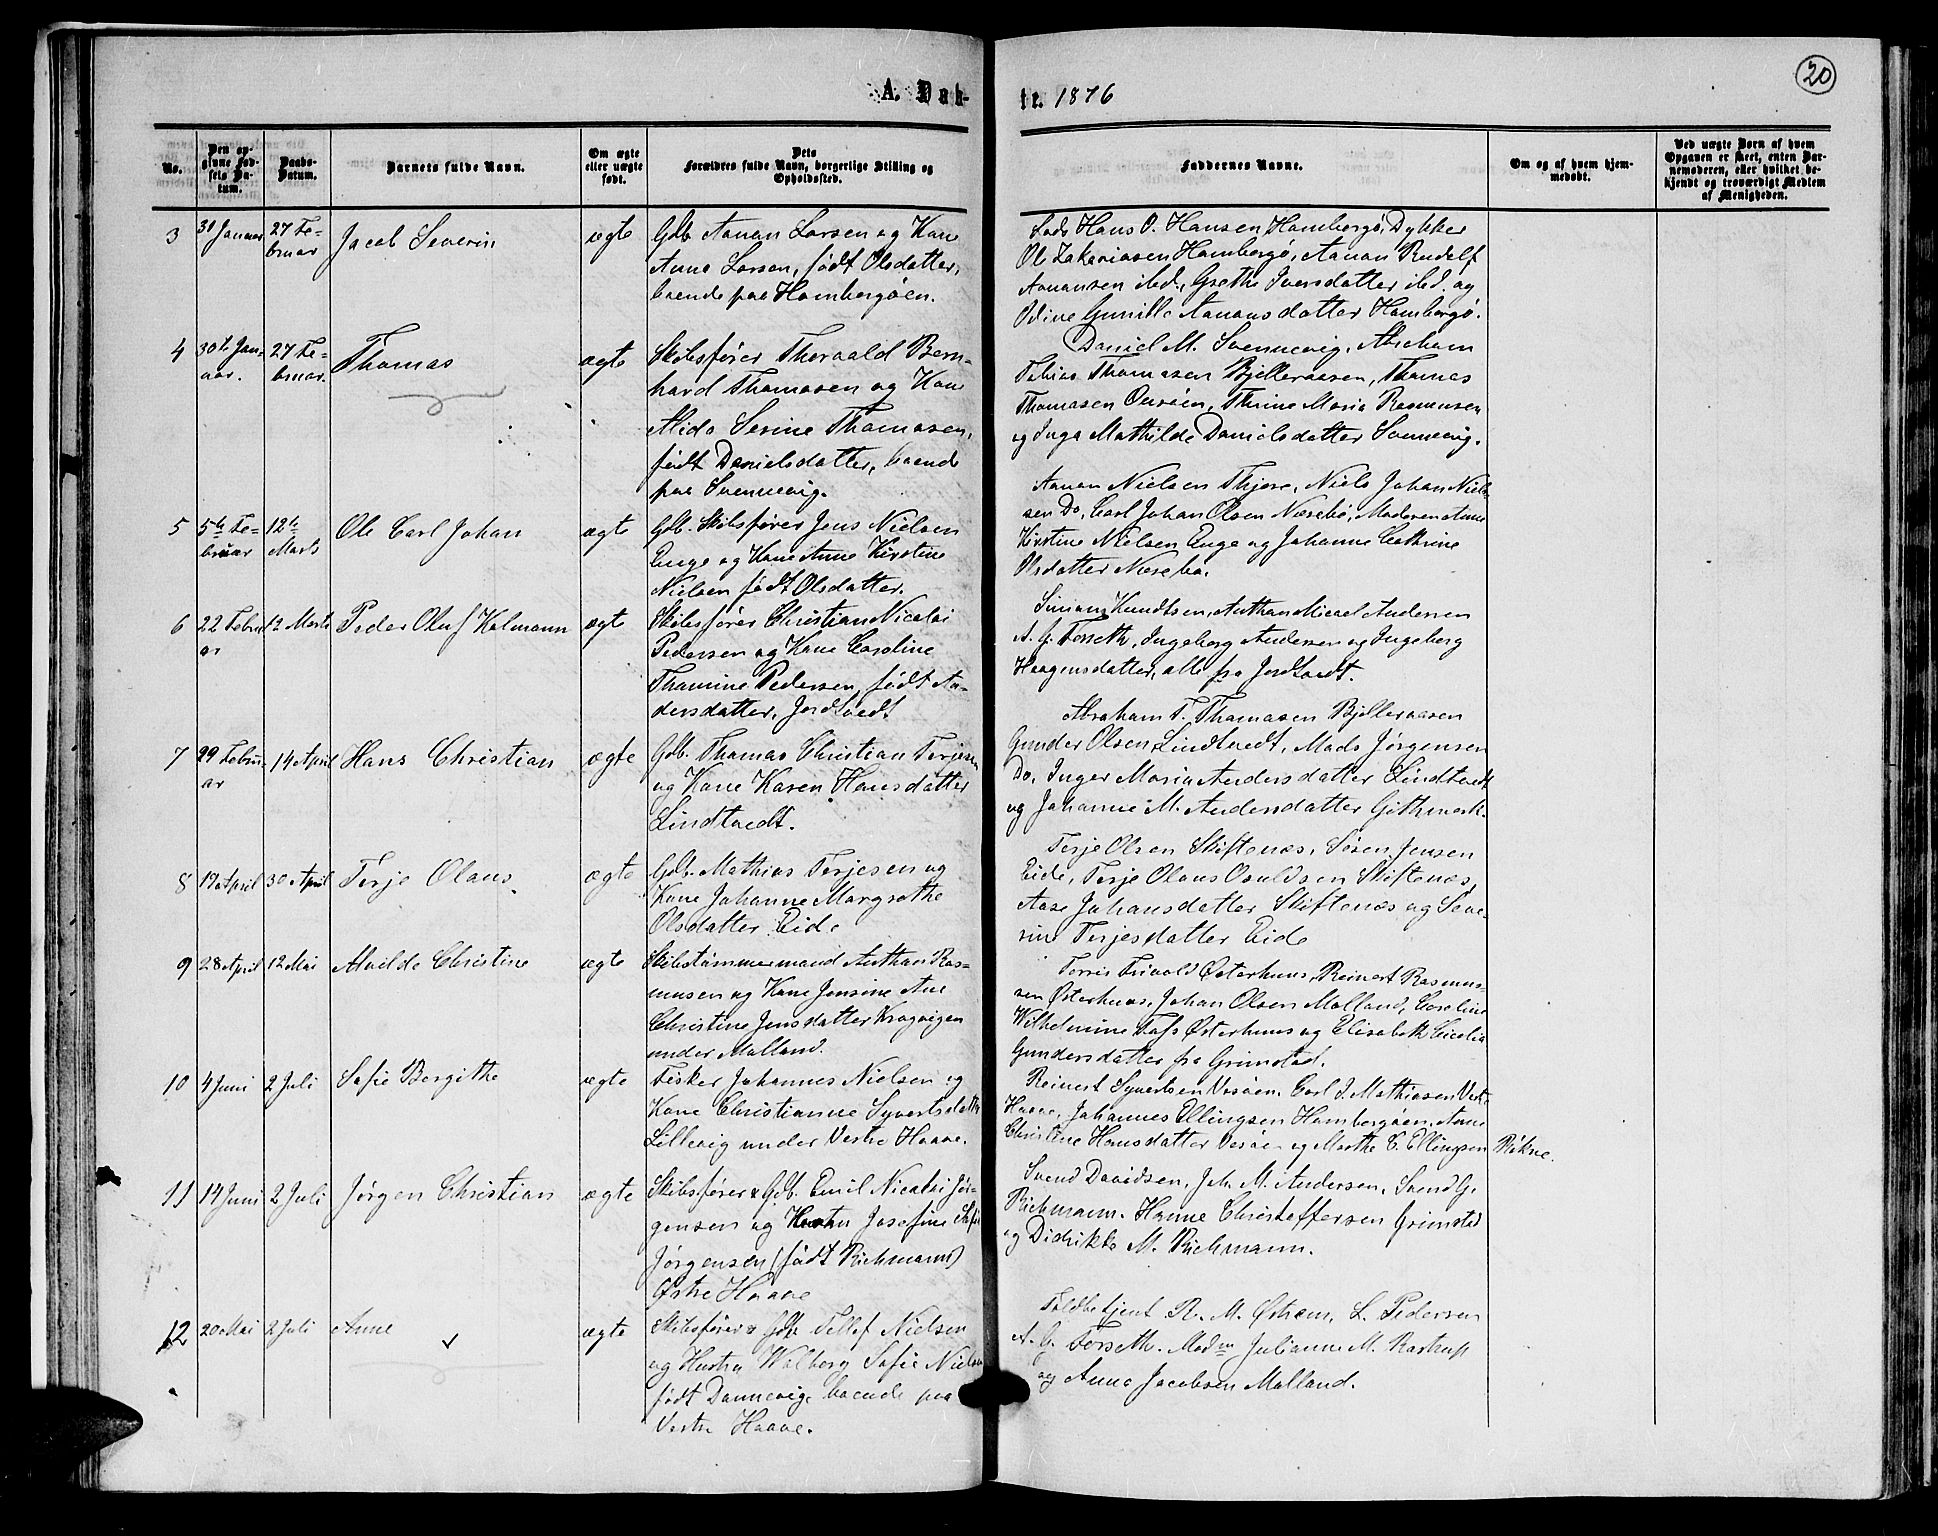 20
A. Døb-
te. 1876
No.
Den op-
givne Fød-
sels Da-
tum.
Daabs-
Datum.
Barnets fulde Navn.
Om ægte
eller uægte
født.
Dets
Forældres fulde Navn, borgerlige Stilling og
Opholdssted.
Faddernes Navne.
Om og af hvem hjem-
medøbt.
Ved uægte Børn af hvem
Opgaven er skeet, enten Bar-
nemoderen, eller hvilket be-
kjendt og troværdigt Medlem
af Menigheden.
3
31 Januar
27 Fe-
bruar
Jacob Severin
ægte
Gdb. Aanon Larsen og Kone
Anne Larsen, født Olsdatter,
boende paa Hamborgøen.
Lods Hans O. Hansen Hamborgø, Dykker
Ole Zakariasen Hamborgø, Aanon Rudolf
Aanonsen ibd., Grethe Iversdatter ibd. og
Odine Gunille Aanonsdatter Hamborgø.
4
30te Jan-
uar.
27 Fe-
bruar.
Thomas
ægte
Skibsfører Thorvald Bern-
hard Thomasen og Kone
Alida Serine Thomasen,
født Danielsdatter, boende
paa Svennevig.
Daniel M. Svennevig, Abraham
Tobias Thomasen Bjelleraasen, Thomas
Thomasen Omsøen, Thrine Maria Rasmusen
og Inga Mathilde Danielsdatter Svennevig.
5
5te Fe-
bruar
12te
Marts
Ole Carl Johan
ægte
Gdb. Skibsfører Jens Nielsen
Enge og Kone Anne Kirstine
Nielsen født Olsdatter.
Aanon Nielsen Thjore, Niels Johan Niel-
sen Do, Carl Johan Olsen Næsebø, Madsen Anne
Kirstine Nielsen Enge og Johanne Cathrine
Olsdatter Næsebø.
6
22 Febru-
ar
12 Marts
Peder Oluf Kalmann
ægte
Skibsfører Christian Nicolai
Pedersen og Kone Caroline
Thomine Pedersen, født An-
dersdatter, Jordtvedt
Simon Knudtsen, Anthon Micael Andersen
A. G. Forseth, Ingeborg Andersen og Ingeborg
Haagensdatter, alle fra Jordtvedt.
7
29 Febru-
ar
14 April
Hans Christian
ægte
Gdb. Thomas Christian Terjesen
og Kone Karen Hansdatter
Lindtvedt.
Abraham T. Thomasen Bjelleraasen
Gunder Olsen Lindtvedt, Mads Jørgensen
Do, Inger Maria Andersdatter Lindtvedt
og Johanne M. Andersdatter Githmark.
8
19 April
30 April
Terje Olaus
ægte
Gdb. Mathias Terjesen og
Kone Johanne Margrethe
Olsdatter Eide
Terje Olsen Skiftenæs, Søren Jensen
Eide, Terje Olaus Osuldsen Skiftenæs,
Aase Johansdatter Skiftenæs og Seve-
rine Terjesdatter Eide
9
28 April
12 Mai
Alvilde Christine
ægte
Skibstømmermand Anthon Ras-
musen og Kone Jensine Ane
Christine Jensdatter Kragvigen
under Molland.
Torris Osterhuus, Reinert Rasmus-
sen Østerhuus, Johan Olsen Molland, Caroline
Wilhelmine Østerhuus og Elisabeth Cicelia
Gundersdatter fra Grimstad.
10
4 Juni
2 Juli
Sofie Bergithe
ægte
Fisker Johannes Nielsen og
Kone Christianne Syvertsdatter
Lillevig under Vestre Haave.
Reinert Syvertsen Vesøen, Carl I. Mathiasen Vest.
Haave, Johannes Ellingsen Hamborgøen, Anne
Christine Hansdatter Vesøen og Marthe C. Ellingsen Røkne.
11
14 Juni
2 Juli
Jørgen Christian
ægte
Skibsfører & Gdb. Emil Nicolai Jør-
gensen og Hustru Josefine Sofie
Jørgensen (født Richmann)
Østre Haave
Svend Davidsen, Joh. M. Andersen, Svend G.
Richmann. Hanne Christoffersen Grimstad
og Didrikke M. Richmann.
12
20 Mai
2 Juli
Anne
ægte
Skibsfører & Gdb Tellef Nielsen
og Hustru Walborg Sofie Nielsen
født Dannevig, boende paa
Vestre Haave.
Toldbetjent R. M. Østrem, L. Pedersen
A. G. Forseth. Madm Julianne M. Rastrup
og Anna Jacobsen Molland.